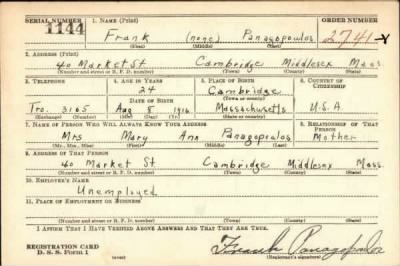 SERIAL NUMBER 1. NAME (Print) ORDER NUMBER
1144 Frank (none) Panagopoulos 2741
(First) (Middle) (Last)
2. ADDRESS (Print)
40 Market St Cambridge Middlesex Mass
(Number and street or R. F. D. number) (Town) (County) (State)
3. TELEPHONE 4. AGE IN YEARS 5. PLACE OF BIRTH 6. COUNTRY OF CITIZENSHIP
24 Cambridge
DATE OF BIRTH (Town or county)
Tro. 3165 Aug 5 1916 Massachusetts U.S.A
(Exchange) (Number) (Mo.) (Day) (Yr.) (State or country)
7. NAME OF PERSON WHO WILL ALWAYS KNOW YOUR ADDRESS 8. RELATIONSHIP OF THAT PERSON
Mrs Mary Ann Panagopoulos Mother
(Mr., Mrs., Miss) (First) (Middle) (Last)
9. ADDRESS OF THAT PERSON
40 Market St Cambridge Middlesex Mass.
(Number and street or R. F. D. number) (Town) (County) (State)
10. EMPLOYER'S NAME
Unemployed
11. PLACE OF EMPLOYMENT OR BUSINESS
(Number and street or R. F. D. number) (Town) (County) (State)
I AFFIRM THAT I HAVE VERIFIED ABOVE ANSWERS AND THAT THEY ARE TRUE.
REGISTRATION CARD
D. S. S. Form 1 Frank Panagopoulos
(Registrant's signature)